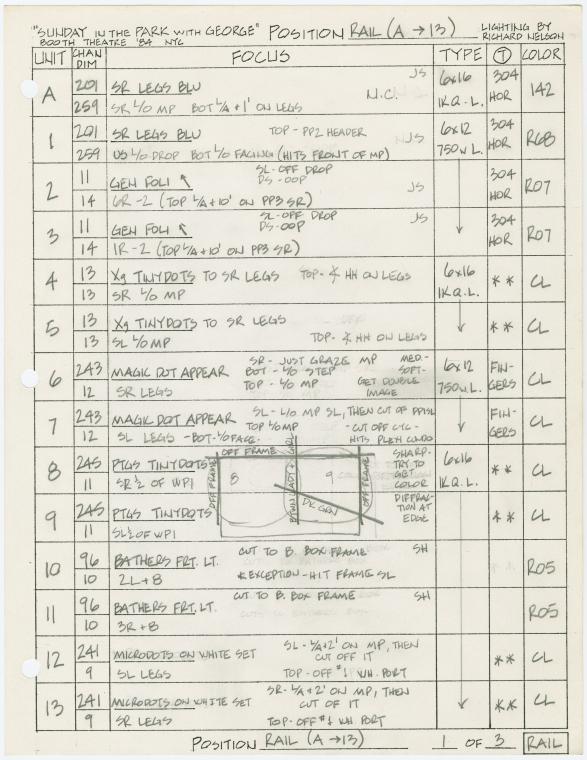 "SUNDAY IN THE PARK WITH GEORGE" POSITION RAIL (A → 13) LIGHTING BY
BOOTH THEATRE '84 NYC RICHARD NELSON
UNIT CHAN DIM FOCUS TYPE T COLOR
A 201 SR LEGS BLU JS 6x16 304 142
259 SR L/O MP BOT L/A + 1' ON LEGS N.C. 1K Q.L. HOR
1 201 SR LEGS BLU TOP - PP2 HEADER 6x12 304 R68
259 US L/O DROP BOT L/O FACING (HITS FRONT OF MP) JS 750W L. HOR
2 11 GEN FOLI ↖ SL - OFF DROP 304 R07
DS - OOP
14 6R - 2 (TOP L/A + 10' ON PP3 SR) JS HOR
3 11 GEN FOLI ↖ SL - OFF DROP JS 304 R07
DS - OOP
14 1R - 2 (TOP L/A + 10' ON PP3 SR) HOR
4 13 Xg TINYDOTS TO SR LEGS TOP - HH ON LEGS 6x16 ** CL
13 SR L/O MP 1K Q.L.
5 13 Xg TINYDOTS TO SR LEGS ** CL
13 SL L/O MP TOP - HH ON LEGS
6 243 MAGIC DOT APPEAR SR - JUST GRAZE MP MED. - 6x12 FIN- CL
BOT - L/O STEP SOFT -
12 SR LEGS TOP - L/O MP GET DOUBLE IMAGE 750W L. GERS
7 243 MAGIC DOT APPEAR SL - L/O MP SL, THEN CUT OF PP1SL FIN- CL
TOP L/O MP - CUT OFF CYC -
12 SL LEGS - BOT - L/O FACE HITS GERS
8 245 PTGS TINYDOTS OFF FRAME SHARP - 6x16 ** CL
11 SR 1/2 OF WP1 TRY TO GET COLOR 1K Q.L.
OFF FRAME 8 BTWN LADY + GIRL 9 OFF FRAME
DK GRN
9 245 PTGS TINYDOTS DIFFRAC- ** CL
TION AT
11 SL 1/2 OF WP1 EDGE
10 96 BATHERS FRT. LT. CUT TO B. BOX FRAME SH R05
10 2L + 8 *EXCEPTION - HIT FRAME SL
11 96 BATHERS FRT. LT. CUT TO B. BOX FRAME SH R05
10 3R + 8
12 241 MICRODOTS ON WHITE SET SL - L/A + 2' ON MP, THEN ** CL
CUT OFF IT
9 SL LEGS TOP - OFF #1 WH. PORT
13 241 MICRODOTS ON WHITE SET SR - L/A + 2' ON MP, THEN ** CL
CUT OF IT
9 SR LEGS TOP - OFF #1 WH. PORT
POSITION RAIL (A → 13) 1 OF 3 RAIL